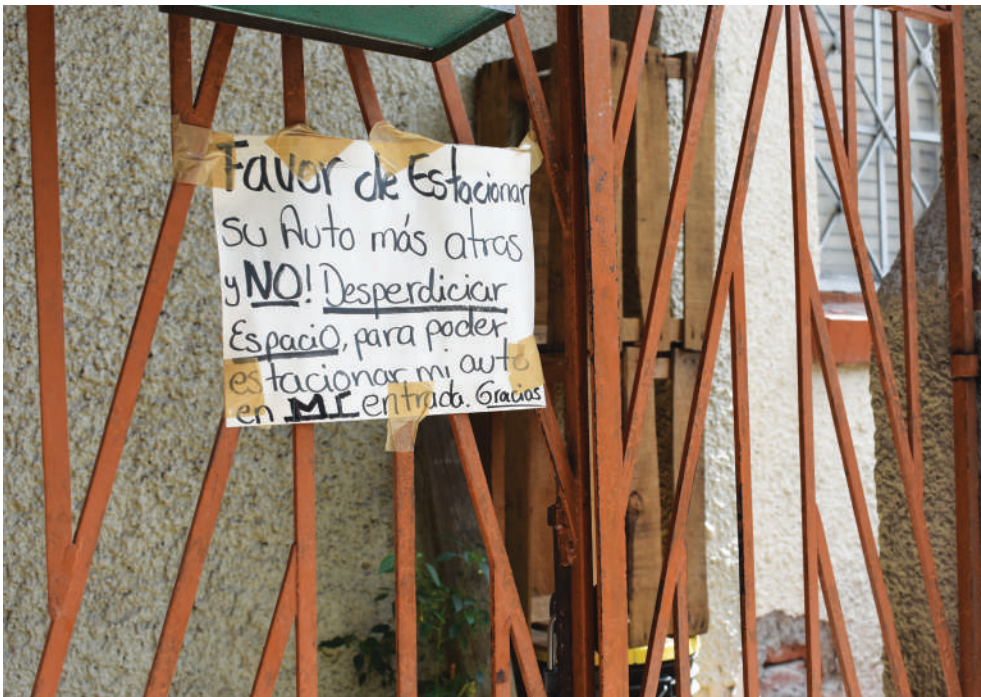 Favor de Estacionar
su Auto más atras
y NO! Desperdiciar
Espacio, para poder
estacionar mi auto
en MI entrada. Gracias